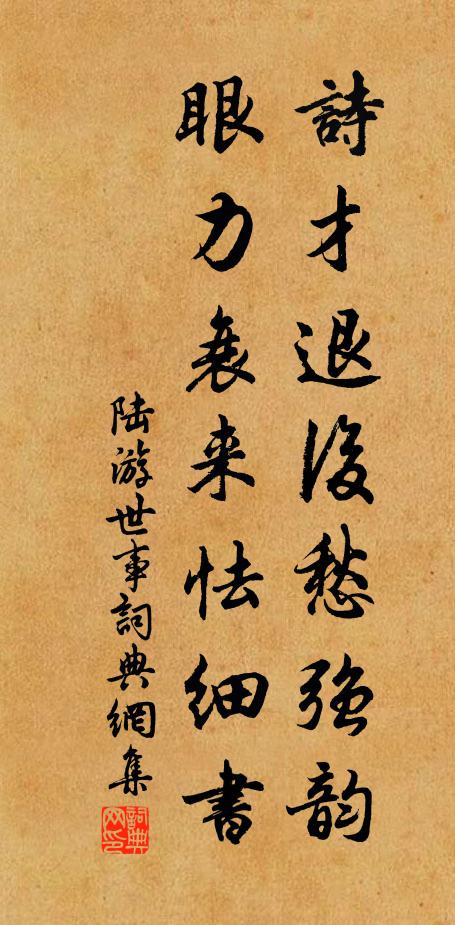 詩才退後愁強韵
眼力衰来怯細書
陆游世事詞典網集
詞典网印